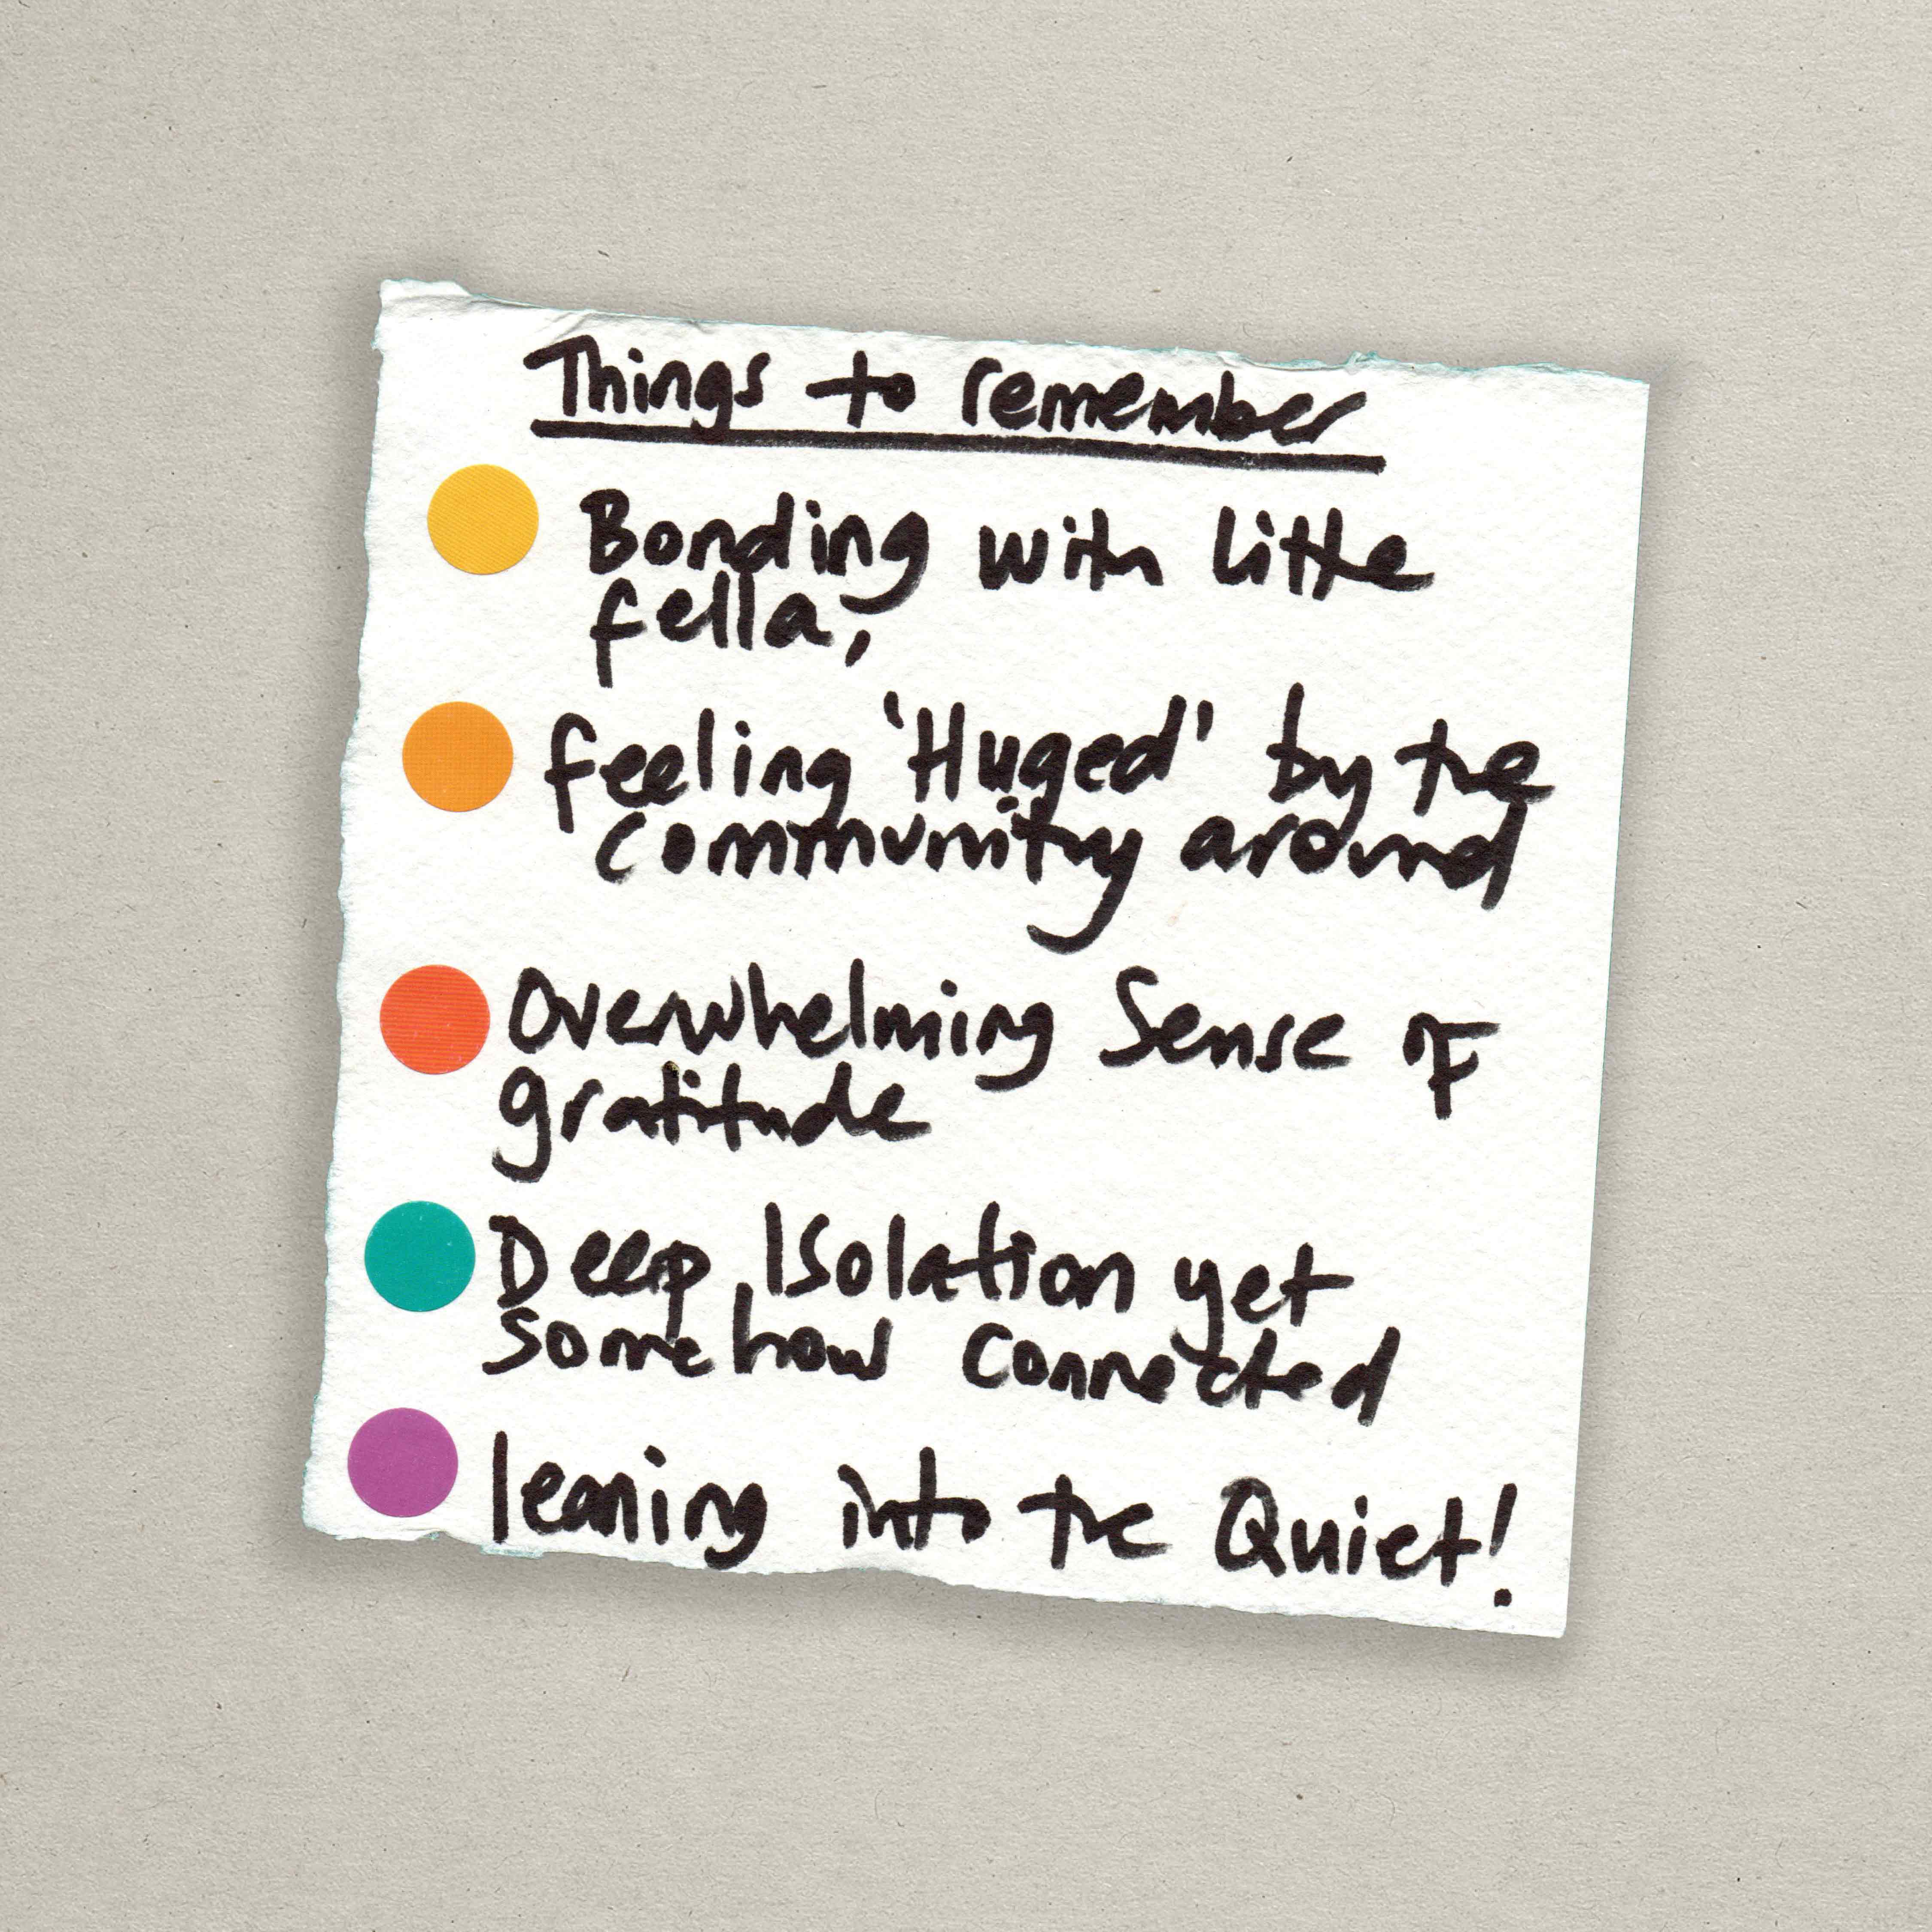 Things to remember
Bonding with little
fella,
feeling 'Huged' by the
community around
Overwhelming Sense of
gratitude
Deep Isolation yet
somehow connected
leaning into the Quiet!